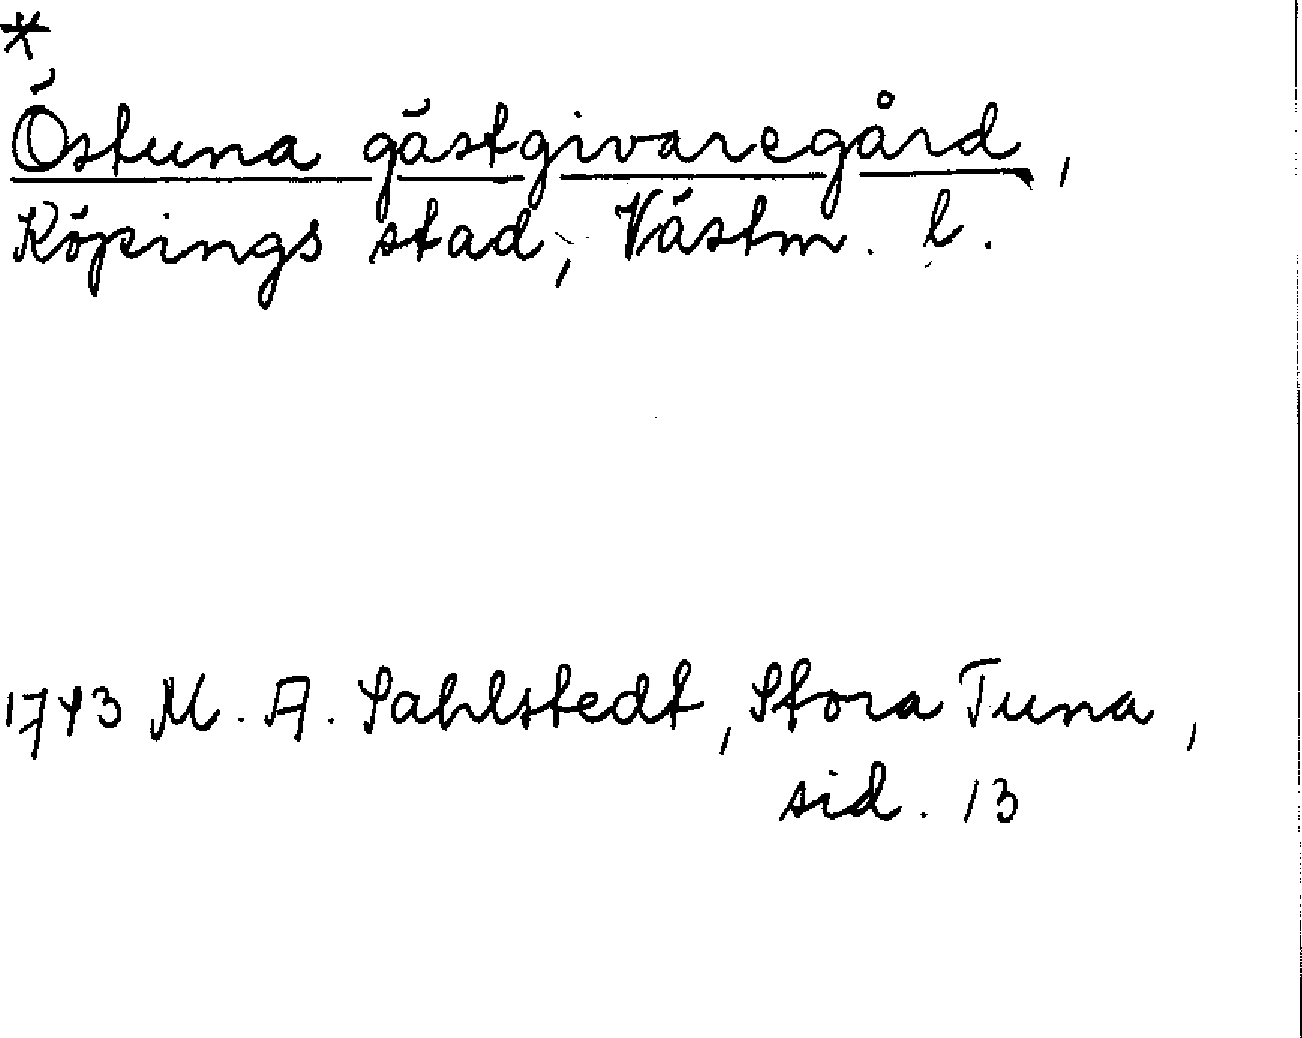 *
Östuna gästgivaregård,
Köpings stad, Västm. l.
1743 M. A. Sahlstedt, Stora Tuna,
sid. 13